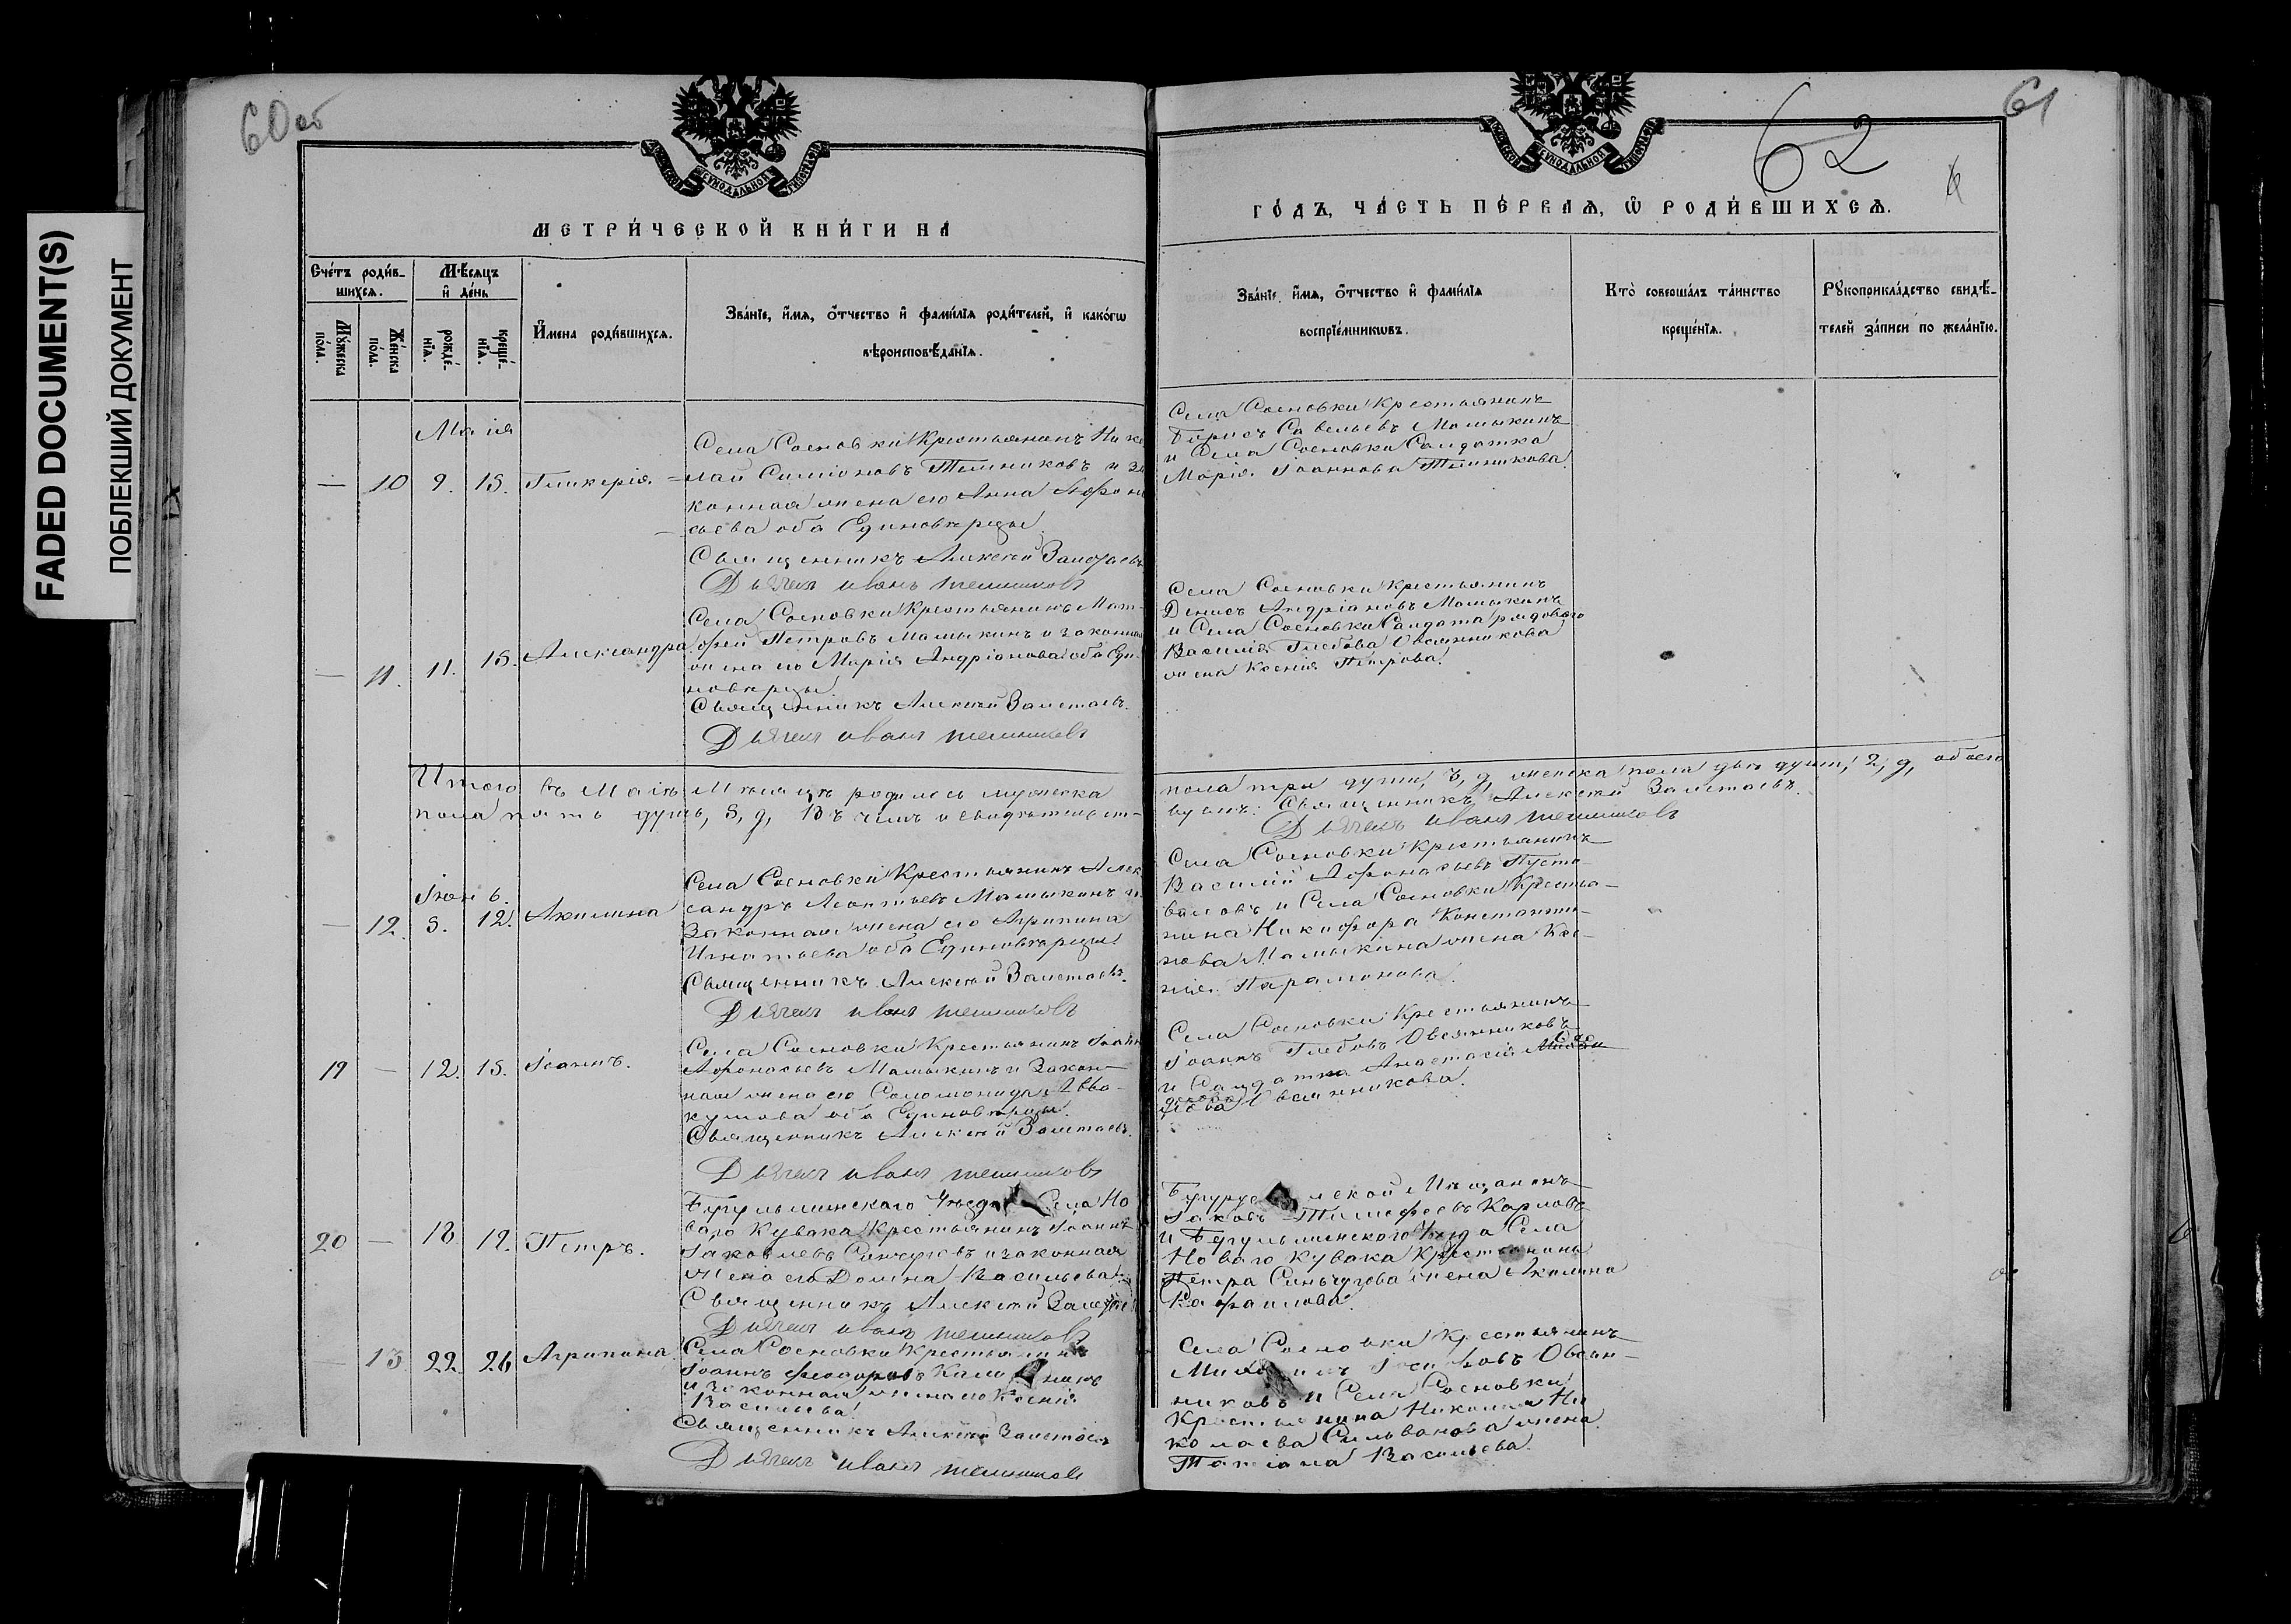 FADED DOCUMENT(S)
ПОБЛЕКШИЙ ДОКУМЕНТ
60 об
МЕТРИ́ЧЕСКОЙ КНИ́ГИ НА
Сче́тъ роди́в-
шихсѧ.
Мѣ́сѧцъ
и҆ де́нь
Мꙋ́жеска
по́ла.
Же́нска
по́ла.
рожде́-
нїѧ.
креще́-
нїѧ.
И҆мена̀ роди́вшихсѧ.
Зва́нїе, и҆́мѧ, ѻ҆́тчество и҆ фами́лїѧ роди́телей, и҆ како́гѡ
вѣроисповѣ́данїѧ.
Маія
— 10 9. 15. Гликерія
Села Сосновки Крестьянинъ Нико
лай Симіоновъ Телтниковъ и за
конная жена его Анна Афона
сьева оба Единоверцы
Священникъ Алексѣй Заметаевъ
Дьячекъ иванъ
— 11. 11. 15. Александра
Села Сосновки Крестьянинъ Мат-
фей Петровъ Мамыкинъ и законная
жена его Марія Андріанова оба Еди
новерцы
Священникъ Алексѣй Заметаевъ.
Дьячекъ иванъ
Итого въ Маіѣ Мѣсяцѣ родилось мужеска
пола пять душъ, 5, д, Въ чемъ и свидѣтельст-
Іюнь
— 12. 5. 12. Акилина
Села Сосновки Крестьянинъ Алек
сандръ Леонтьевъ Мамыкинъ и
Законная жена его Агрипина
Игнатьева оба Единоверцы
Священникъ Алексѣй Заметаевъ.
Дьячекъ иванъ
19 — 12. 15. Іоаннъ.
Села Сосновки Крестьянинъ Іоаннъ
Афонасьевъ Мамыкинъ и Закон-
ная жена его Соломонида Авва-
кумова оба Единоверцы.
Священникъ Алексѣй Заметаевъ.
Дьячекъ иванъ
20 — 18 19. Петръ.
Бугульминскаго Уезда Села Но
ваго Кувака Крестьянинъ Іоаннъ
Іаковлевъ и законная
жена его Домна Васильева
Священникъ Алексѣй Заметаевъ
Дьячекъ иванъ
— 13 22. 26 Агрипина.
Села Сосновки Крестьянинъ
Іоаннъ Феодоровъ
и законная жена его Ксенія
Васильева
Священникъ Алексѣй Заметаевъ
Дьячекъ иванъ
61
62
ГО́ДЪ, ЧА́СТЬ ПЕ́РВАѦ, Ѡ҆ РОДИ́ВШИХСѦ.
Зва́нїе, и҆́мѧ, ѻ҆́тчество и҆ фами́лїѧ
воспрїе́мникѡвъ.
Кто̀ соверша́лъ та́инство
креще́нїѧ.
Рꙋкоприкла́дство свидѣ́-
телей за́писи по жела́нїю.
Села Сосновки Крестьянинъ
Борисъ Савельевъ Мамыкинъ
и Села Сосновки Солдатка
Марія Іоаннова
Села Сосновки Крестьянинъ
Денисъ Андріановъ Мамыкинъ
и Села Сосновки Солдата рядового
Василія Глебова Овсянникова
жена Ксенія Петрова.
пола три души, 3, д, женска пола двѣ души, 2, д, обоего
вуемъ. Священникъ Алексѣй Заметаевъ.
Дьячекъ иванъ
Села Сосновки Крестьянинъ
Василій Афонасьевъ Пусто-
валовъ и Села Сосновки Крестья-
нина Никифора Константи-
нова Мамыкина жена Ксе-
нія Парамонова.
Села Сосновки Крестьянинъ
Іоаннъ Глебовъ Овсянниковъ
и Солдатка Анастасія
Овсянникова.
Мещанинъ
Іаковъ Тимофеевъ Карповъ
и Бугульминскаго Уезда Села
Новаго Кувака Крестьянина
Петра Синьчугова жена Акилина
Рафаилова.
Села Сосновки Крестьянинъ
Овсян-
никовъ и Села Сосновки
Крестьянина Николая Ни
колаева Сильванова жена
Татіана Васильева.